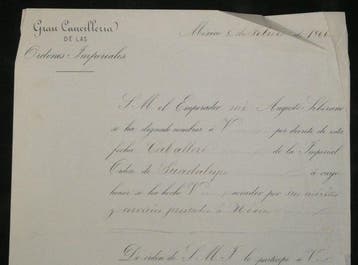 Gran Cancilleria
DE LAS
Ordenes Imperiales
Mexico 8 de Febrero de 186
S. M. el Emperador mi Augusto Soberano
se ha dignado nombrar á V por decreto de esta
fecha Caballero de la Imperial
Orden de Guadalupe á cuyo
honor se ha hecho V acreedor por sus meritos
y servicios prestados á
De orden de S. M. I. lo participo á V